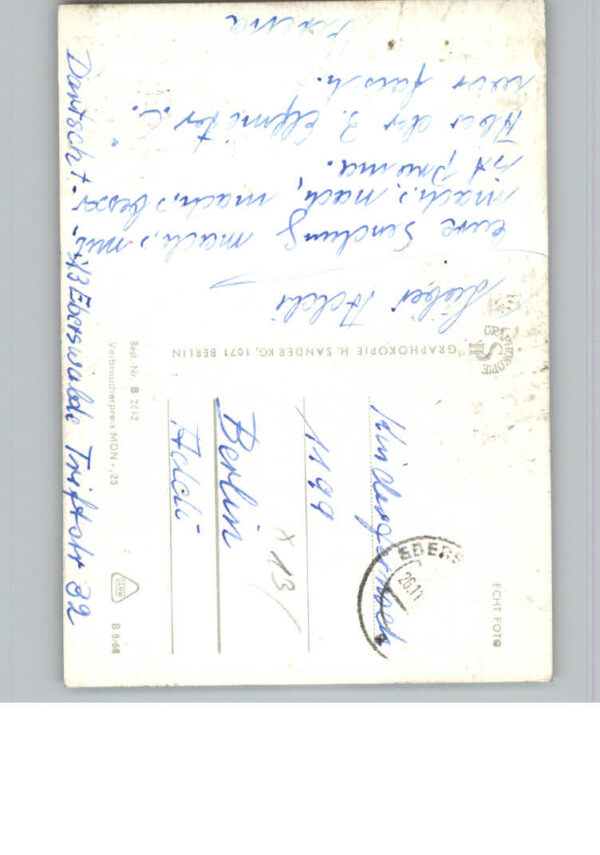 Lieber Addi
eure Sendung mach,> mit,
mach,> nach, mach,> besser
ist prima.
Aber der 3. Elfmeter
war falsch.
GRAPHOKOPIE H. SANDER KG, 1071 BERLIN
GRAPHOKOPIE
H S
Kinderfernseh
1199
Berlin
Addi
x 13/
EBERS
26.11
ECHT FOTO
Best.-Nr. B 2642
Verbraucherpreis MDN -,25
B 8/68
Dantscht. 13 Eberswalde Triftstr 32